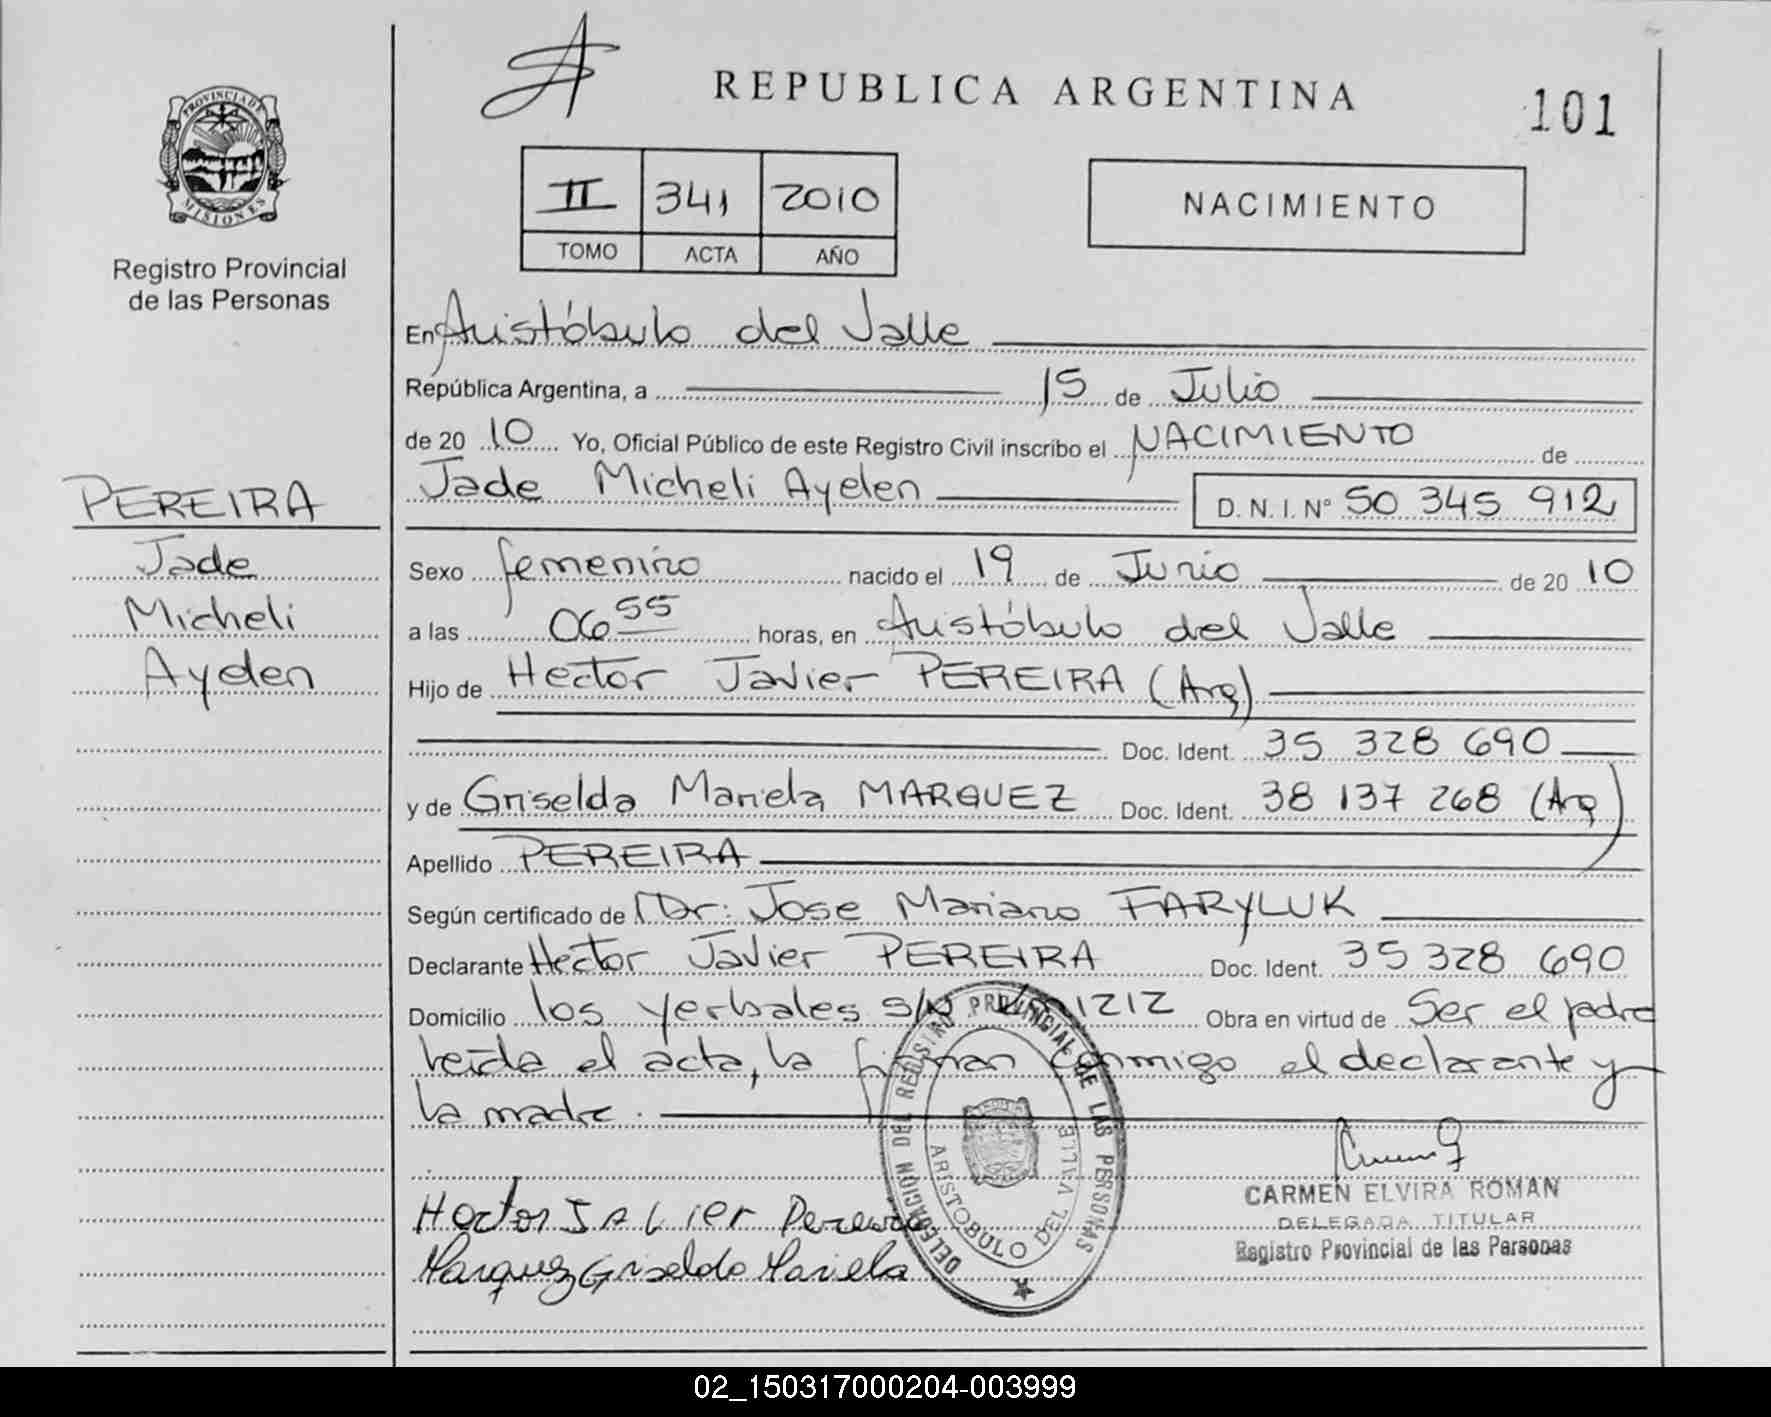 REPUBLICA ARGENTINA
101
PROVINCIA DE
MISIONES
Registro Provincial
de las Personas
II 341 2010
TOMO ACTA AÑO
NACIMIENTO
En Aristóbulo del Valle
República Argentina, a 15 de Julio
de 20 10 Yo, Oficial Público de este Registro Civil inscribo el NACIMIENTO de
Jade Micheli Ayelen D. N. I. Nº 50 345 912
PEREIRA
Jade
Micheli
Ayelen
Sexo femenino nacido el 19 de Junio de 20 10
a las 06 55 horas, en Aristóbulo del Valle
Hijo de Hector Javier PEREIRA (Arg)
Doc. Ident. 35 328 690
y de Griselda Mariela MARQUEZ Doc. Ident. 38 137 268 (Arg)
Apellido PEREIRA
Según certificado de Dr: Jose Mariano FARYLUK
Declarante Hector Javier PEREIRA Doc. Ident. 35 328 690
Domicilio los yerbales s/n Km 1212 Obra en virtud de Ser el padre
leída el acta, la firman conmigo el declarante y
la madre.
DELEGACION DEL REGISTRO PROVINCIAL DE LAS PERSONAS
ARISTOBULO DEL VALLE
CARMEN ELVIRA ROMAN
DELEGADA TITULAR
Registro Provincial de las Personas
Hector JAvier Pereira
Marquez Griselda Mariela
02_150317000204-003999